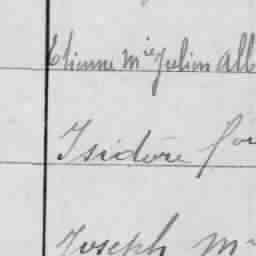 Etienne Mie Julien Alb
Isidore
Joseph M